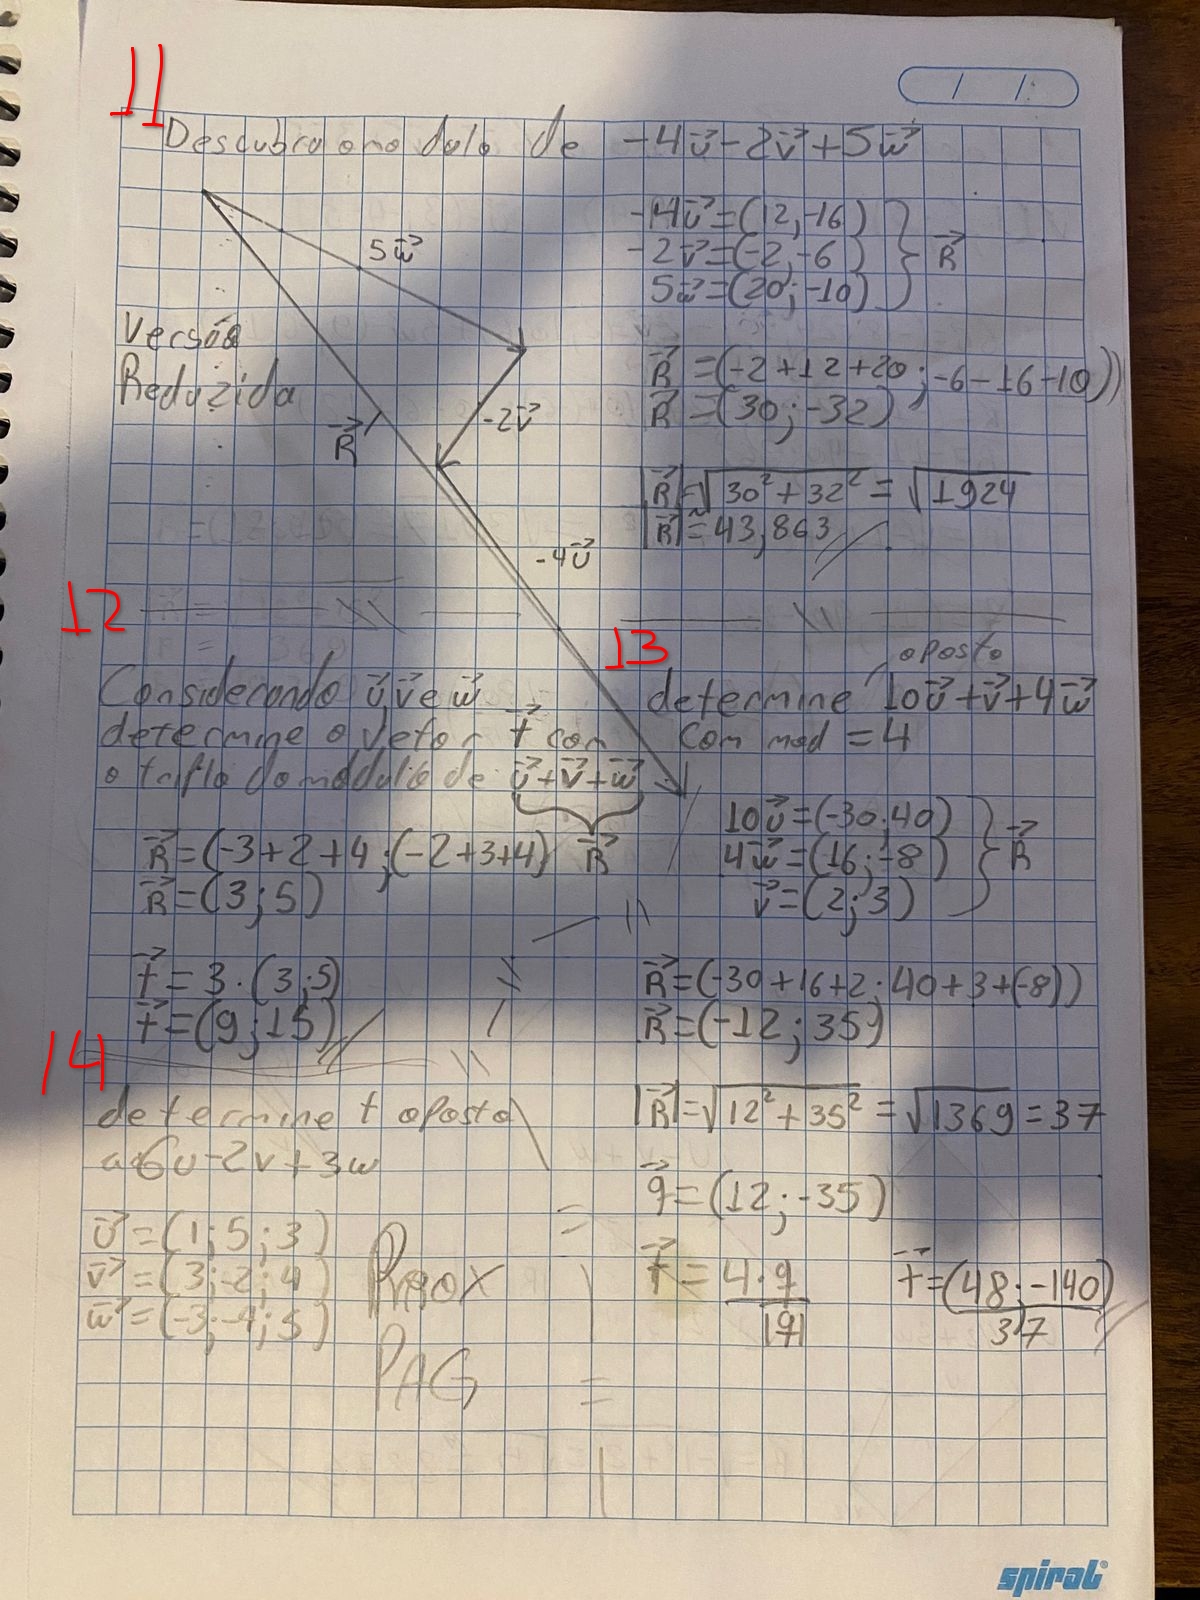 11
/ /
Descubra o modulo de -4u⃗-2v⃗+5w⃗
-4u⃗=(12,-16)
-2v⃗=(-2,-6)
5w⃗=(20;-10)
R⃗
5w⃗
Versão
Reduzida
R⃗
-2v⃗
-4u⃗
R⃗=(-2+12+20;-6-16-10))
R⃗=(30;-32)
|R⃗|=√30²+32² = √1924
|R⃗|≅43,863
12
Considerando u⃗,v⃗ e w⃗
determine o vetor t⃗ com
o triplo do modulo de u⃗+v⃗+w⃗
R⃗
R⃗=(-3+2+4;(-2+3+4)
R⃗=(3;5)
t⃗=3.(3;5)
t⃗=(9;15)
13
oposto
determine 10u⃗+v⃗+4w⃗
com mod =4
10u⃗=(-30;40)
4w⃗=(16;-8)
v⃗=(2;3)
R⃗
R⃗=(-30+16+2;40+3+(-8))
R⃗=(-12;35)
|R⃗|=√12²+35² = √1369=37
q⃗=(12;-35)
t⃗=4.q
|q|
t⃗=(48;-140)
37
14
determine t oposto
a 6u-2v+3w
u⃗=(1;5;3)
v⃗=(3;-2;4)
w⃗=(-3;-4;5)
Prox
PAG
spiral